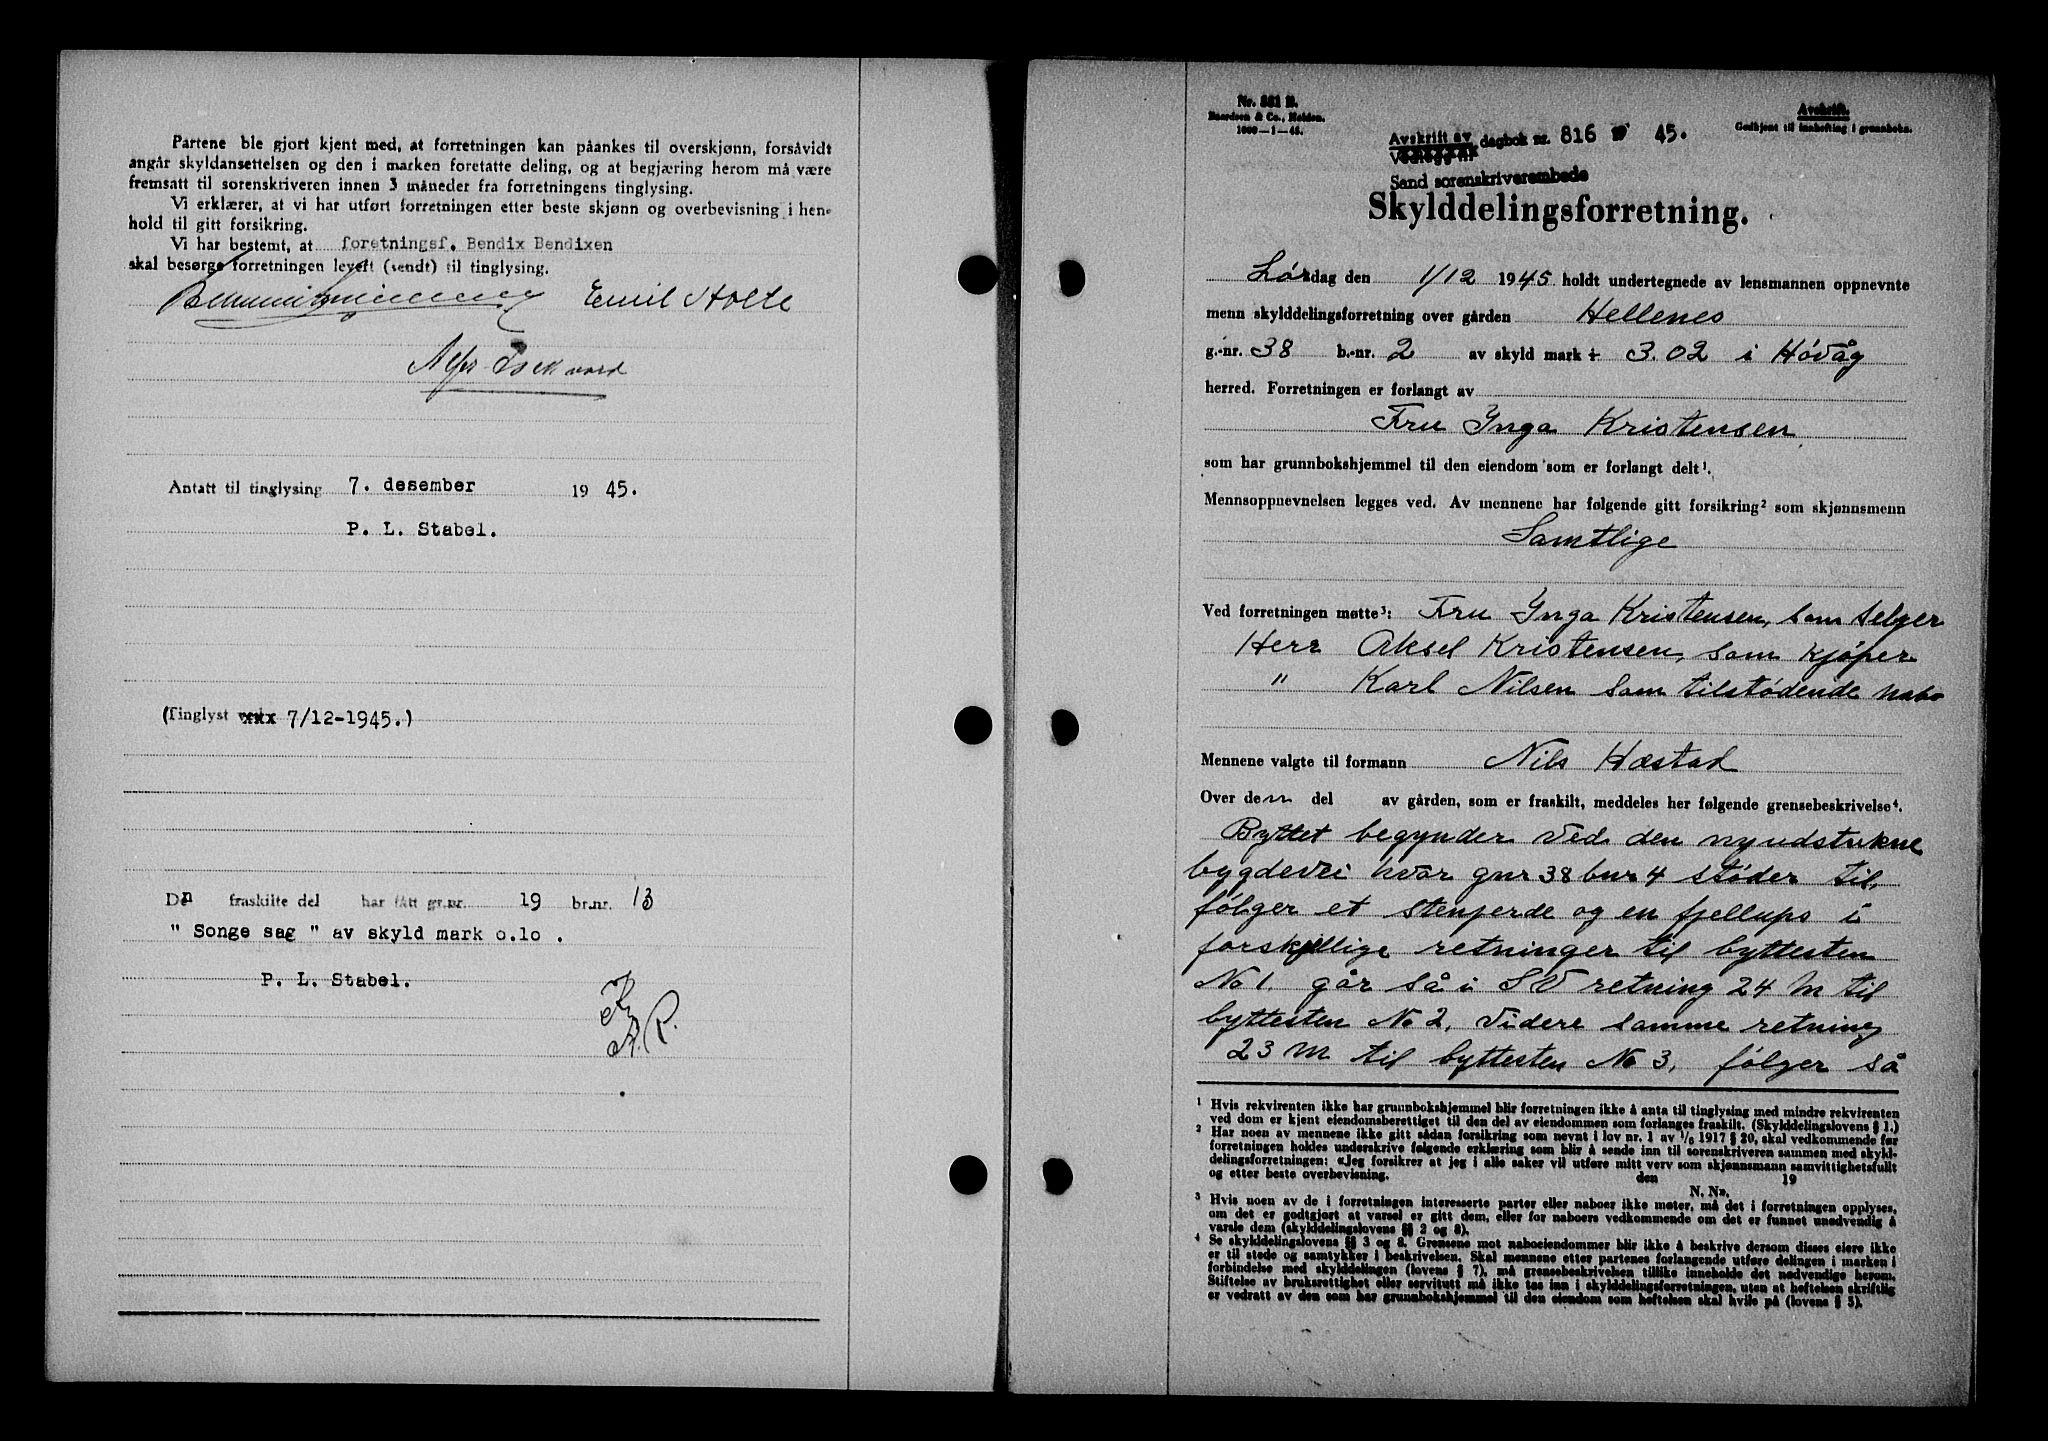 Partene ble gjort kjent med, at forretningen kan påankes til overskjønn, forsåvidt
angår skyldansettelsen og den i marken foretatte deling, og at begjæring herom må være
fremsatt til sorenskriveren innen 3 måneder fra forretningens tinglysing.
Vi erklærer, at vi har utført forretningen etter beste skjønn og overbevisning i hen-
hold til gitt forsikring.
Vi har bestemt, at foretningsf. Bendix Bendixen
skal besørge forretningen levert (sendt) til tinglysing.
Emil Holte
Antatt til tinglysing 7. desember 1945.
P. L. Stabel.
(Tinglyst xxx 7/12-1945.)
Dn fraskilte del har fått gr.nr. 19 br.nr. 13
" Songe sag " av skyld mark 0.10 .
P. L. Stabel.
Nr. 331 B.
Baardsen & Co., Halden.
1000-1-45.
Avskrift.
Godkjent til innhefting i grunnboka.
Avskrift av
dagbok nr. 816 19 45.
Sand sorenskriverembede
Skylddelingsforretning.
Lørdag den 1/12 1945 holdt undertegnede av lensmannen oppnevnte
menn skylddelingsforretning over gården Hellenes
g.-nr. 38 b.-nr. 2 av skyld mark 3.02 i Høvåg
herred. Forretningen er forlangt av
Fru Inga Kristensen
som har grunnbokshjemmel til den eiendom som er forlangt delt¹.
Mennsoppnevnelsen legges ved. Av mennene har følgende gitt forsikring² som skjønnsmenn
Samtlige
Ved forretningen møtte³: Fru Inga Kristensen, som selger
Herr Aksel Kristensen, som kjøper
" Karl Nilsen som tilstødende nabo
Mennene valgte til formann Nils Hæstad
Over den del av gården, som er fraskilt, meddeles her følgende grensebeskrivelse⁴.
Byttet begynder ved den nyudstukne
bygdevei hvor gnr 38 bnr 4 støder til,
følger et stenjerde og en fjellups i
forskjellige retninger til byttesten
No 1. går så i SV retning 24 m til
byttesten No 2, videre samme retning
23 m til byttesten No 3, følger så
¹ Hvis rekvirenten ikke har grunnbokshjemmel blir forretningen ikke å anta til tinglysing med mindre rekvirenten
ved dom er kjent eiendomsberettiget til den del av eiendommen som forlanges fraskilt. (Skylddelingslovens § 1.)
² Har noen av mennene ikke gitt sådan forsikring som nevnt i lov nr. 1 av 1/6 1917 § 20, skal vedkommende før
forretningen holdes underskrive følgende erklæring som blir å sende inn til sorenskriveren sammen med skyld-
delingsforretningen: «Jeg forsikrer at jeg i alle saker vil utføre mitt verv som skjønnsmann samvittighetsfullt
og etter beste overbevisning. den 19
N. N.».
³ Hvis noen av de i forretningen interesserte parter eller naboer ikke møter, må det i forretningen opplyses,
om det er godtgjort at varsel er gitt dem, eller for naboers vedkommende om det er funnet unødvendig å
varsle dem (skylddelingslovens §§ 2 og 8).
⁴ Se skylddelingslovens §§ 3 og 8. Grensene mot naboeiendommer blir ikke å beskrive dersom disses eiere ikke
er til stede og samtykker i beskrivelsen. Skal mennene etter partenes forlangende utføre delingen i marken i
forbindelse med skylddelingen (lovens § 7), må grensebeskrivelsen tillike inneholde det nødvendige herom.
Stiftelse av bruksrettighet eller servitutt må ikke tas inn i skylddelingsforretningen, uten at heftelsen skriftlig
er vedtatt av den som har grunnbokshjemmel til den eiendom som heftelsen skal hvile på (lovens § 5).